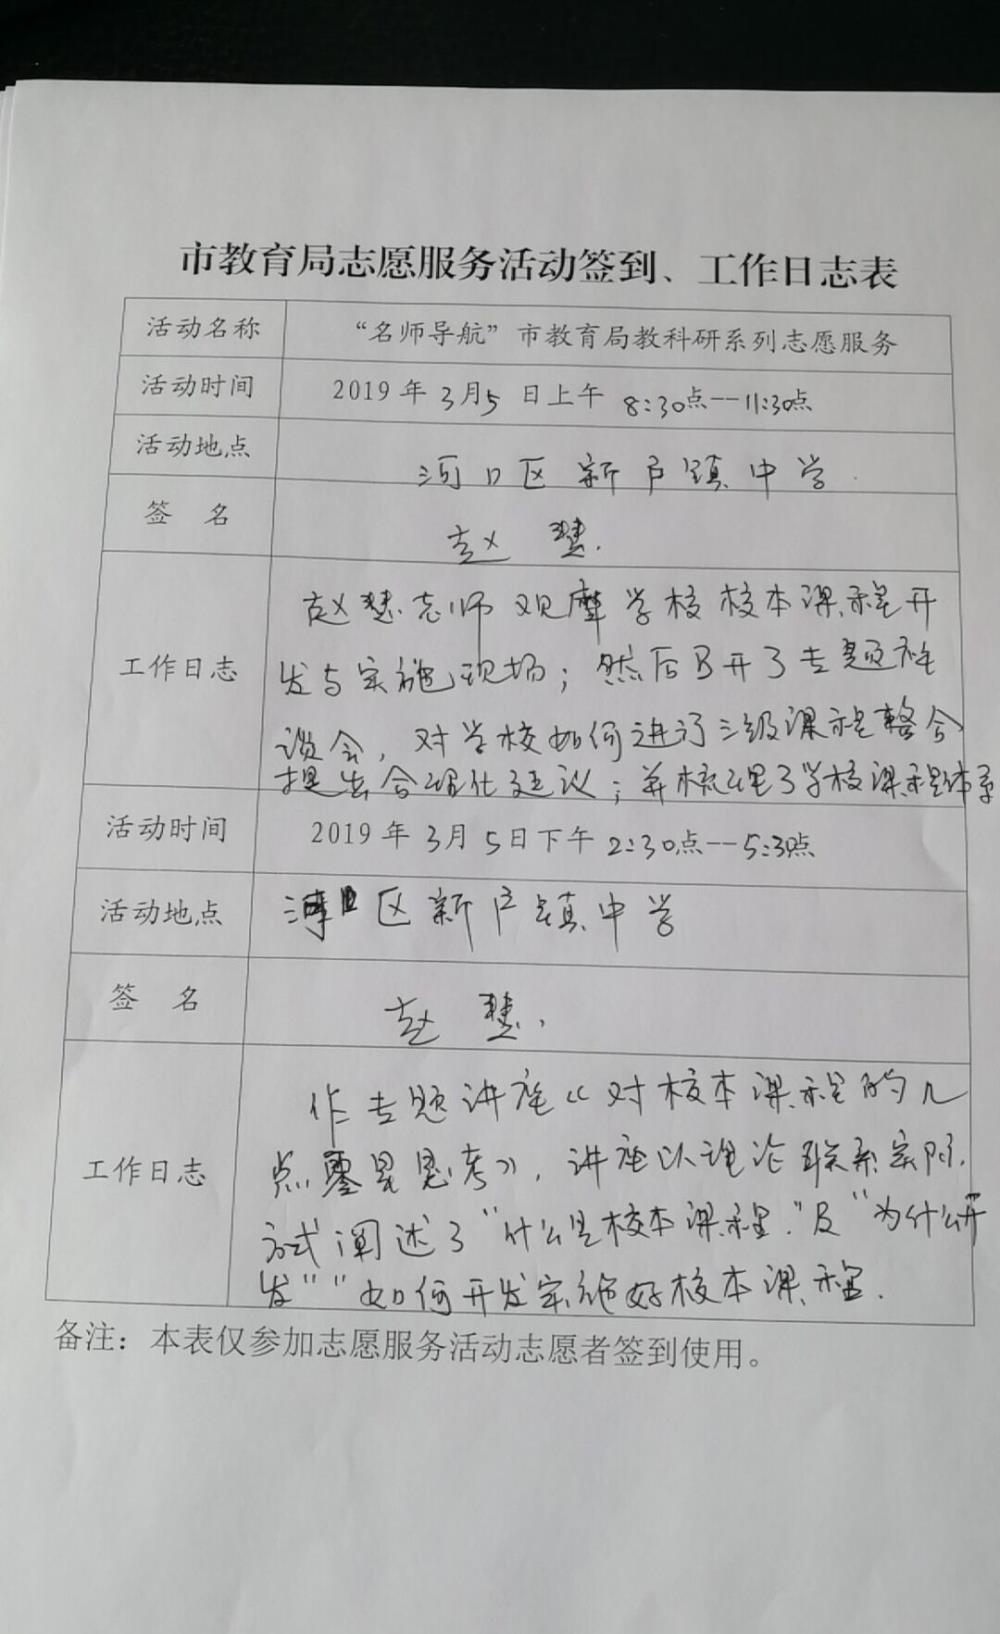 市教育局志愿服务活动签到、工作日志表
活动名称 “名师导航”市教育局教科研系列志愿服务
活动时间 2019年3月5日上午 8:30点--11:30点
活动地点 河口区新户镇中学
签 名 赵慧
工作日志
赵慧老师观摩学校校本课程开
发与实施现场；然后召开了专题座
谈会，对学校如何进行三级课程整合
提出合理化建议；并梳理了学校课程体系
活动时间 2019年3月5日下午 2:30点--5:30点
活动地点 河口区新户镇中学
签 名 赵慧
工作日志
作专题讲座《对校本课程的几
点零星思考》，讲座以理论联系实际
方式阐述了“什么是校本课程”及“为什么开
发”“如何开发实施好校本课程.
备注：本表仅参加志愿服务活动志愿者签到使用。